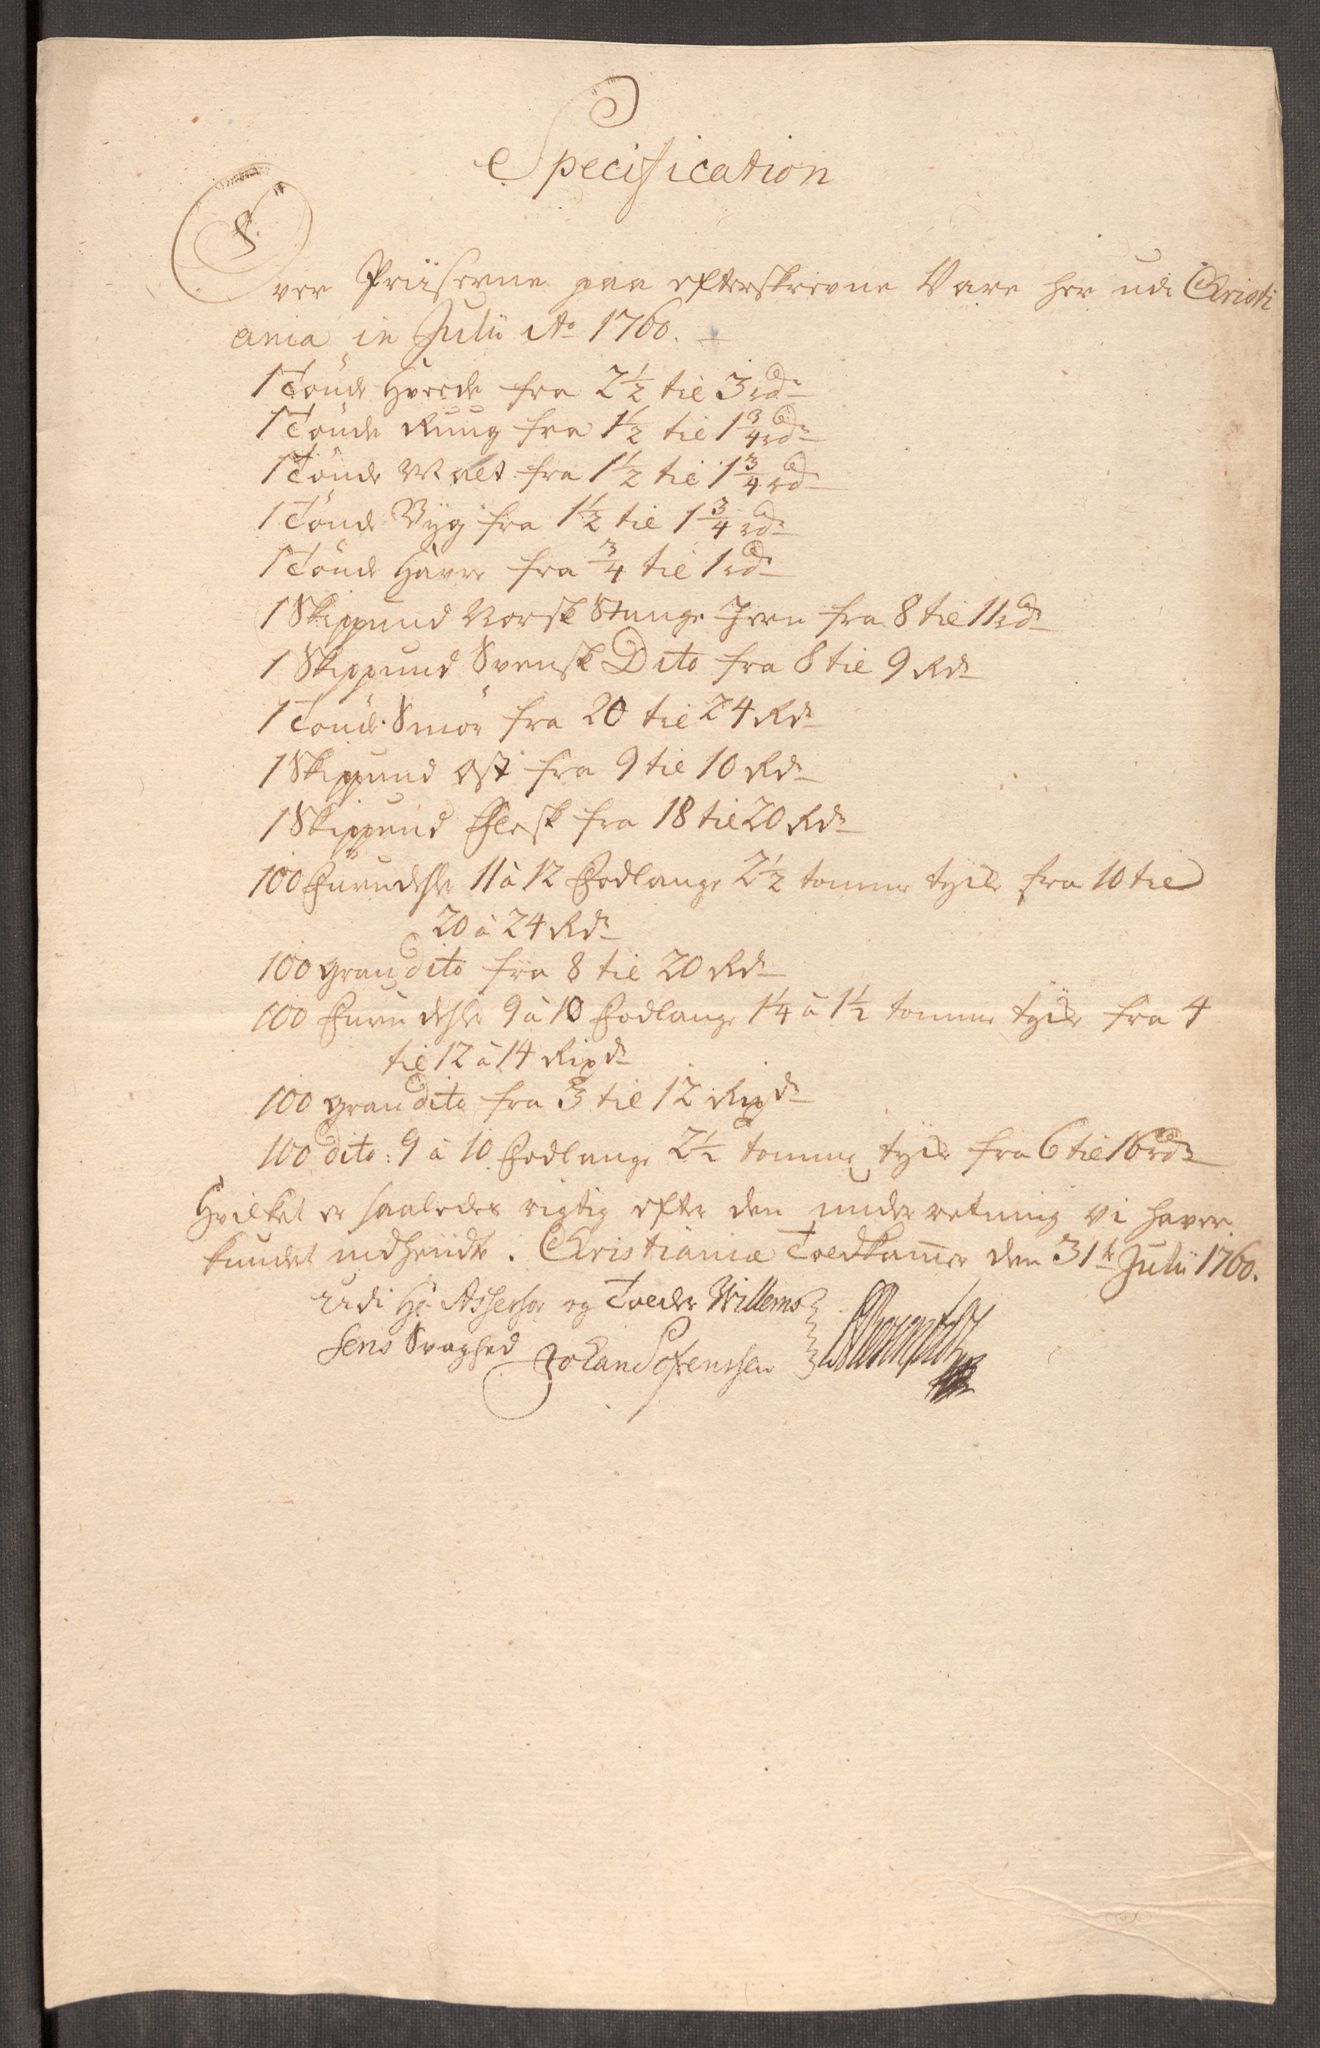 Specification
Over Priiserne paa efterskrevne Vare her udi Christi
ania in Julii Ao 1760.
1 Tönde Hvede fra 2 1/2 til 3 rdr
1 Tönde Rüug fra 1 1/2 til 1 3/4 rdr
1 Tönde Malt fra 1 1/2 til 1 3/4 rdr
1 Tönde Byg fra 1 1/2 til 1 3/4 rdr
1 Tönde Havre fra 3/4 til 1 rdr
1 Skippund Norsk Stange Jern fra 8 til 11 rdr
1 Skippund Svensk Dito fra 8 til 9 Rdr
1 Tönde Smör fra 20 til 24 Rdr
1 Skippund Ost fra 9 til 10 Rdr
1 Skippund Flesk fra 18 til 20 Rdr
100 Furudehle 11 à 12 Fodlange 2 1/2 tomme tycke fra 10 til
20 à 24 Rdr
100 gran dito fra 8 til 20 Rdr
100 Furudehle 9 à 10 Fodlange 1 1/4 à 1 1/2 tomme tycke fra 4
til 12 à 14 Rixdr
100 gran dito fra 3 til 12 Rixdr
100 dito: 9 à 10 Fodlange 2 1/2 tomme tycke fra 6 til 16 rdr
Hvilket er saaledes rigtig efter den underretning vi haver
kundet indhendte. Christiania Toldkamer den 31te Julii 1760.
Udi Hr Assessor og Tolder Willems
sens Svaghed Johan Sörenssen